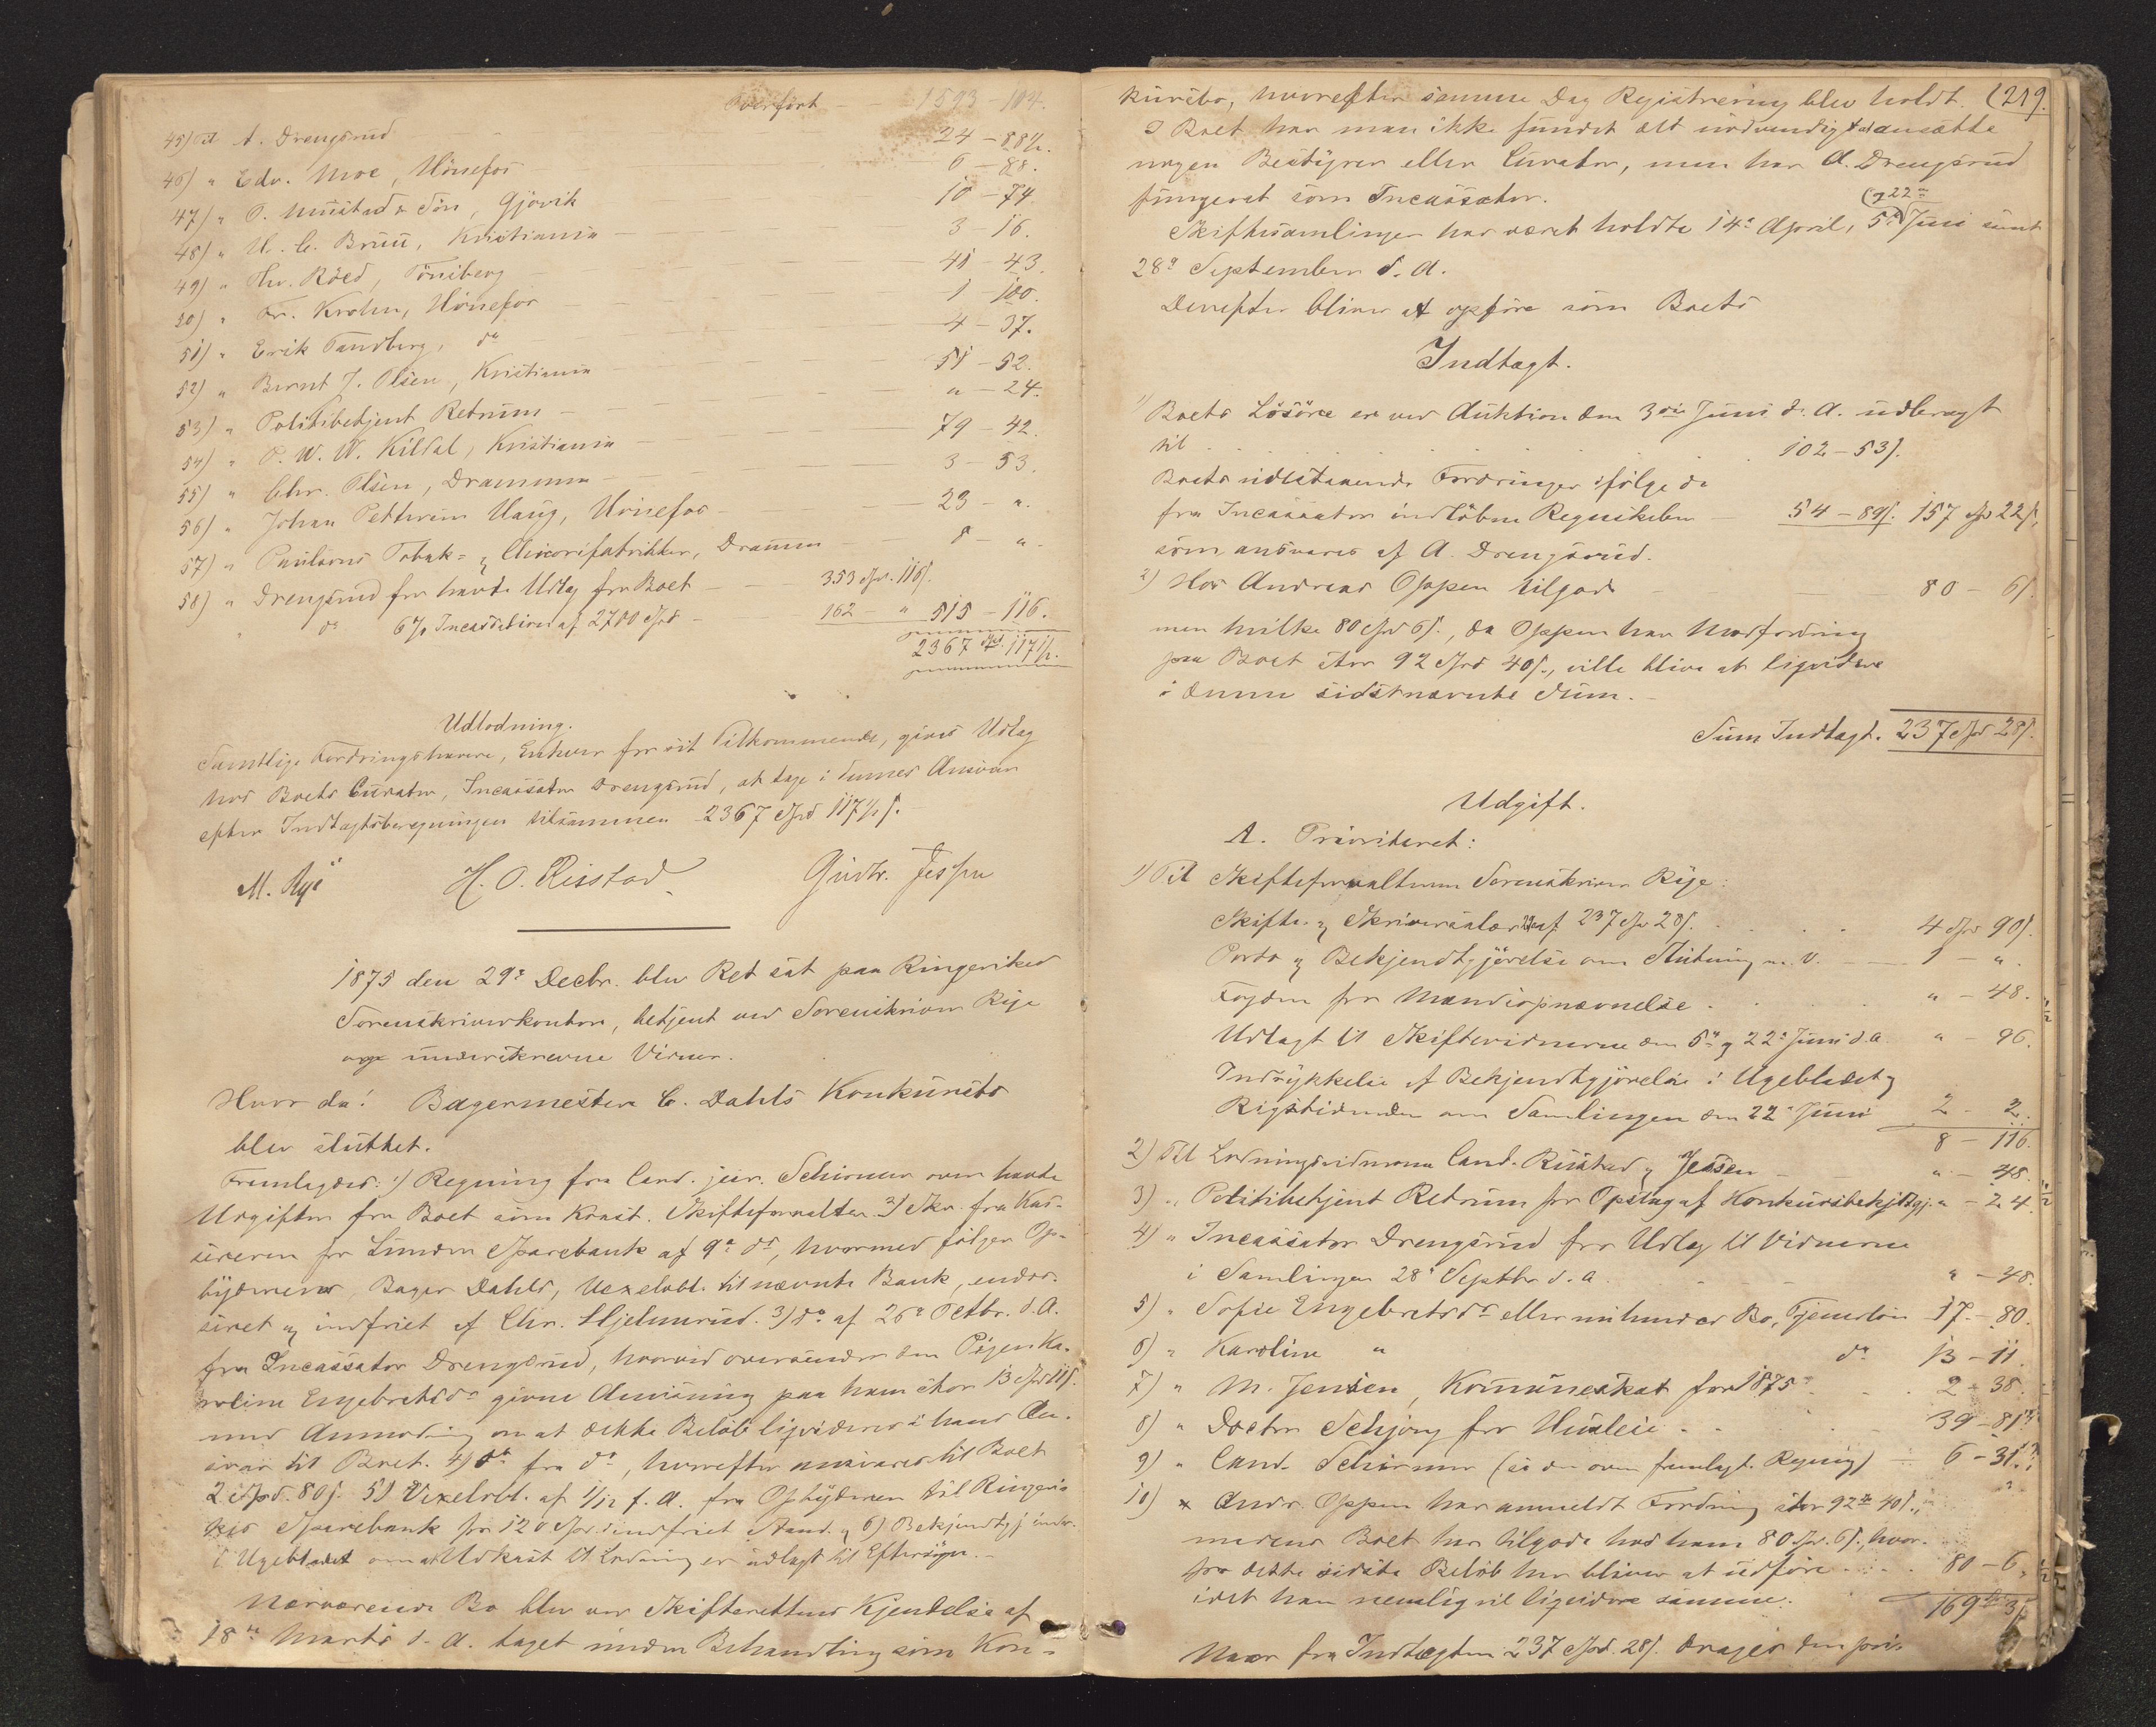 Overført — 1593 - 104.
45) Til A. Drengsrud — 24 - 88½.
46) " Edv. Moe, Hönefos — 6 - 88.
47) " O. Mustad & Sön, Gjövik — 10 - 74.
48) " H. C. Bruu, Kristiania — 3 - 16.
49) " Hr. Röed, Tönsberg — 41 - 43.
50) " Fr. Krohn, Hönefos — 1 - 100.
51) " Erik Tandberg, do — 4 - 37.
52) " Bernt J. Olsen, Kristiania — 51 - 52.
53) " Politibetjent Retrum — " - 24.
54) " P. W. W. Kildal, Kristiania — 79 - 42.
55) " Chr. Olsen, Drammen — 3 - 53.
56) " Johan Petterson Haug, Hönefos — 23 - ".
57) " Paulsens Tobak- og Chicorifabrikker, Drammen — 8 - "
58) " Drengsrud for havte Udlæg for Boet — 353 Spd. 116 s.
" do 6% Incassation af 2700 Spd — 162 - " 515 - 116.
2367 Spd. 117½.
Udlodning.
Samtlige Fordringshavere, Enhver for sit Tilkommende, gives Udlæg
hos Boets Curator, Incassator Drengsrud, at tage i dennes Ansvar
efter Indtægtsberegningen tilsammen 2367 Spd 117½ s.
M. Rye H. O. Risstad Gudbr. Jessen
1875 den 29de Decbr. blev Ret sat paa Ringerikes
Sorenskriverkontor, betjent ved Sorenskriver Rye
og underskrevne Vidner.
Hvor da: Bagermester C. Dahls Konkursbo
blev sluttet.
Fremlagdes: 1) Regning fra Cand. jur. Schirmer over havte
Udgifter for Boet som Const. Skifteforvalter. 2) Skr. fra Kas-
sereren for Lunder Sparebank af 9de ds, hvormed følger Op-
byderens, Bager Dahls, Vexelobl. til nævnte Bank, endos-
seret og indfriet af Chr. Hjelmerud. 3) do af 26de Octbr. d. A.
fra Incassator Drengsrud, hvorved oversendes den Pigen Ka-
roline Engebretsdr givne Anvisning paa ham stor 13 Spd 11 s.
med Anmodning om at dette Beløb ligvideres i hans An-
svar til Boet. 4) do fra do, hvorefter ansvares til Boet
2 Spd. 80 s. 5) Vexelobl. af 1/12 f. A. fra Opbyderen til Ringeri-
kes Sparebank for 120 Spd. indfriet Aand. og 6) Bekjendtgj. inder.
i Ugebladet om at Udkast til Lodning er udlagt til Eftersyn.
Nærværende Bo blev ved Skifterettens Kjendelse af
18de Marts d. A. taget under Behandling som Kon-
kursbo, hvorefter samme Dag Registrering blev holdt. (219).
I Boet har man ikke fundet det nødvendigt at ansætte
nogen Bestyrer eller Curator, men har A. Drengsrud
fungeret som Incassator.
Skiftesamlinger har været holdte 14de April, 5te og 22de Juni samt
28de September d. A.
Derefter bliver at opføre som Boets
Indtægt.
1) Boets Lösöre er ved Auktion den 3die Juni d. A. udbragt
til . . . . . 102 - 53 s.
Boets udestaaende Fordringer ifølge de
fra Incassator indløbne Regnskaber — 54 - 89 s. 157 Spd 22 s.
som ansvares af A. Drengsrud.
2) Hos Andreas Oppen tilgode — 80 - 6 s.
men hvilke 80 Spd 6 s., da Oppen har Modfordring
paa Boet stor 92 Spd 40 s., ville blive at ligvidere
i denne sidstnævnte Sum.
Sum Indtægt. 237 Spd 28 s.
Udgift.
A. Prioriteret:
1) Til Skifteforvalteren Sorenskriver Rye:
Skifte- og Skriversalær 2% af 237 Spd 28 s. . . . 4 Spd 90 s.
Porto og Bekjendtgjørelse om Slutning m. v. — 1 - ".
Fogden for Mændsopnævnelse . . . " - 48.
Udlagt til Skiftevidnerne den 5te og 22de Juni d. A. " - 96.
Indrykkelse af Bekjendtgjørelse i Ugebladet og
Rigstidenden om Samlingen den 22de Juni 2 - 2.
8 - 116.
2) Til Lodningsvidnerne Cand. Risstad og Jessen — " - 48.
3) " Politibetjent Retrum for Opslag af Konkursbekjdtgj. " - 24.
4) " Incassator Drengsrud for Udlæg til Vidnerne
i Samlingen 28de Septbr d. A. " - 48.
5) " Sofie Engebretsdr eller mulend es Bo, Tjenerløn 17 - 80.
6) " Karoline " do 13 - 11.
7) " M. Jensen, Kommuneskat for 1875 . . 2 - 38.
8) " Doctor Schjöng for Husleie . . 39 - 81
9) " Cand. Schirmer (se den oven fremlagt. Regning) — 6 - 31.
10) " Andr. Oppen har anmeldt Fordring stor 92 Spd 40 s.,
medens Boet har tilgode hos ham 80 Spd. 6 s., hvor-
for dette sidste Beløb her bliver at udføre . . . 80 - 6,
idet han nemlig vil ligvidere samme.
169 Spd 3 s.
Naar fra Indtægten 237 Spd. 28 s. drages den pri-